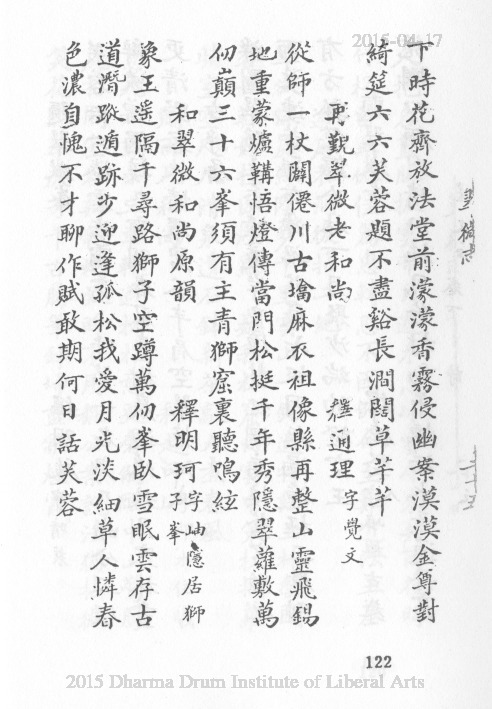 2015-04-17
下時花齊放法堂前濛濛香霧侵幽案漠漠金尊對
綺筵六六芙蓉題不盡谿長澗闊草芊芊
再覲翠微老和尚 釋通理字覺文
從師一杖闢僊川古墖麻衣祖像縣再整山靈飛錫
地重蒙爐鞲悟燈傳當門松挺千年秀隱翠蘿敷萬
仞巔三十六峯須有主青獅窟裏聽鳴絃
和翠微和尚原韻 釋明珂字岫隱居獅子峯
象王遥隔千尋路獅子空蹲萬仞峯臥雪眠雲存古
道潛蹤遁跡少迎逢孤松我愛月光淡細草人憐春
色濃自愧不才聊作賦敢期何日話芙蓉
122
2015 Dharma Drum Institute of Liberal Arts